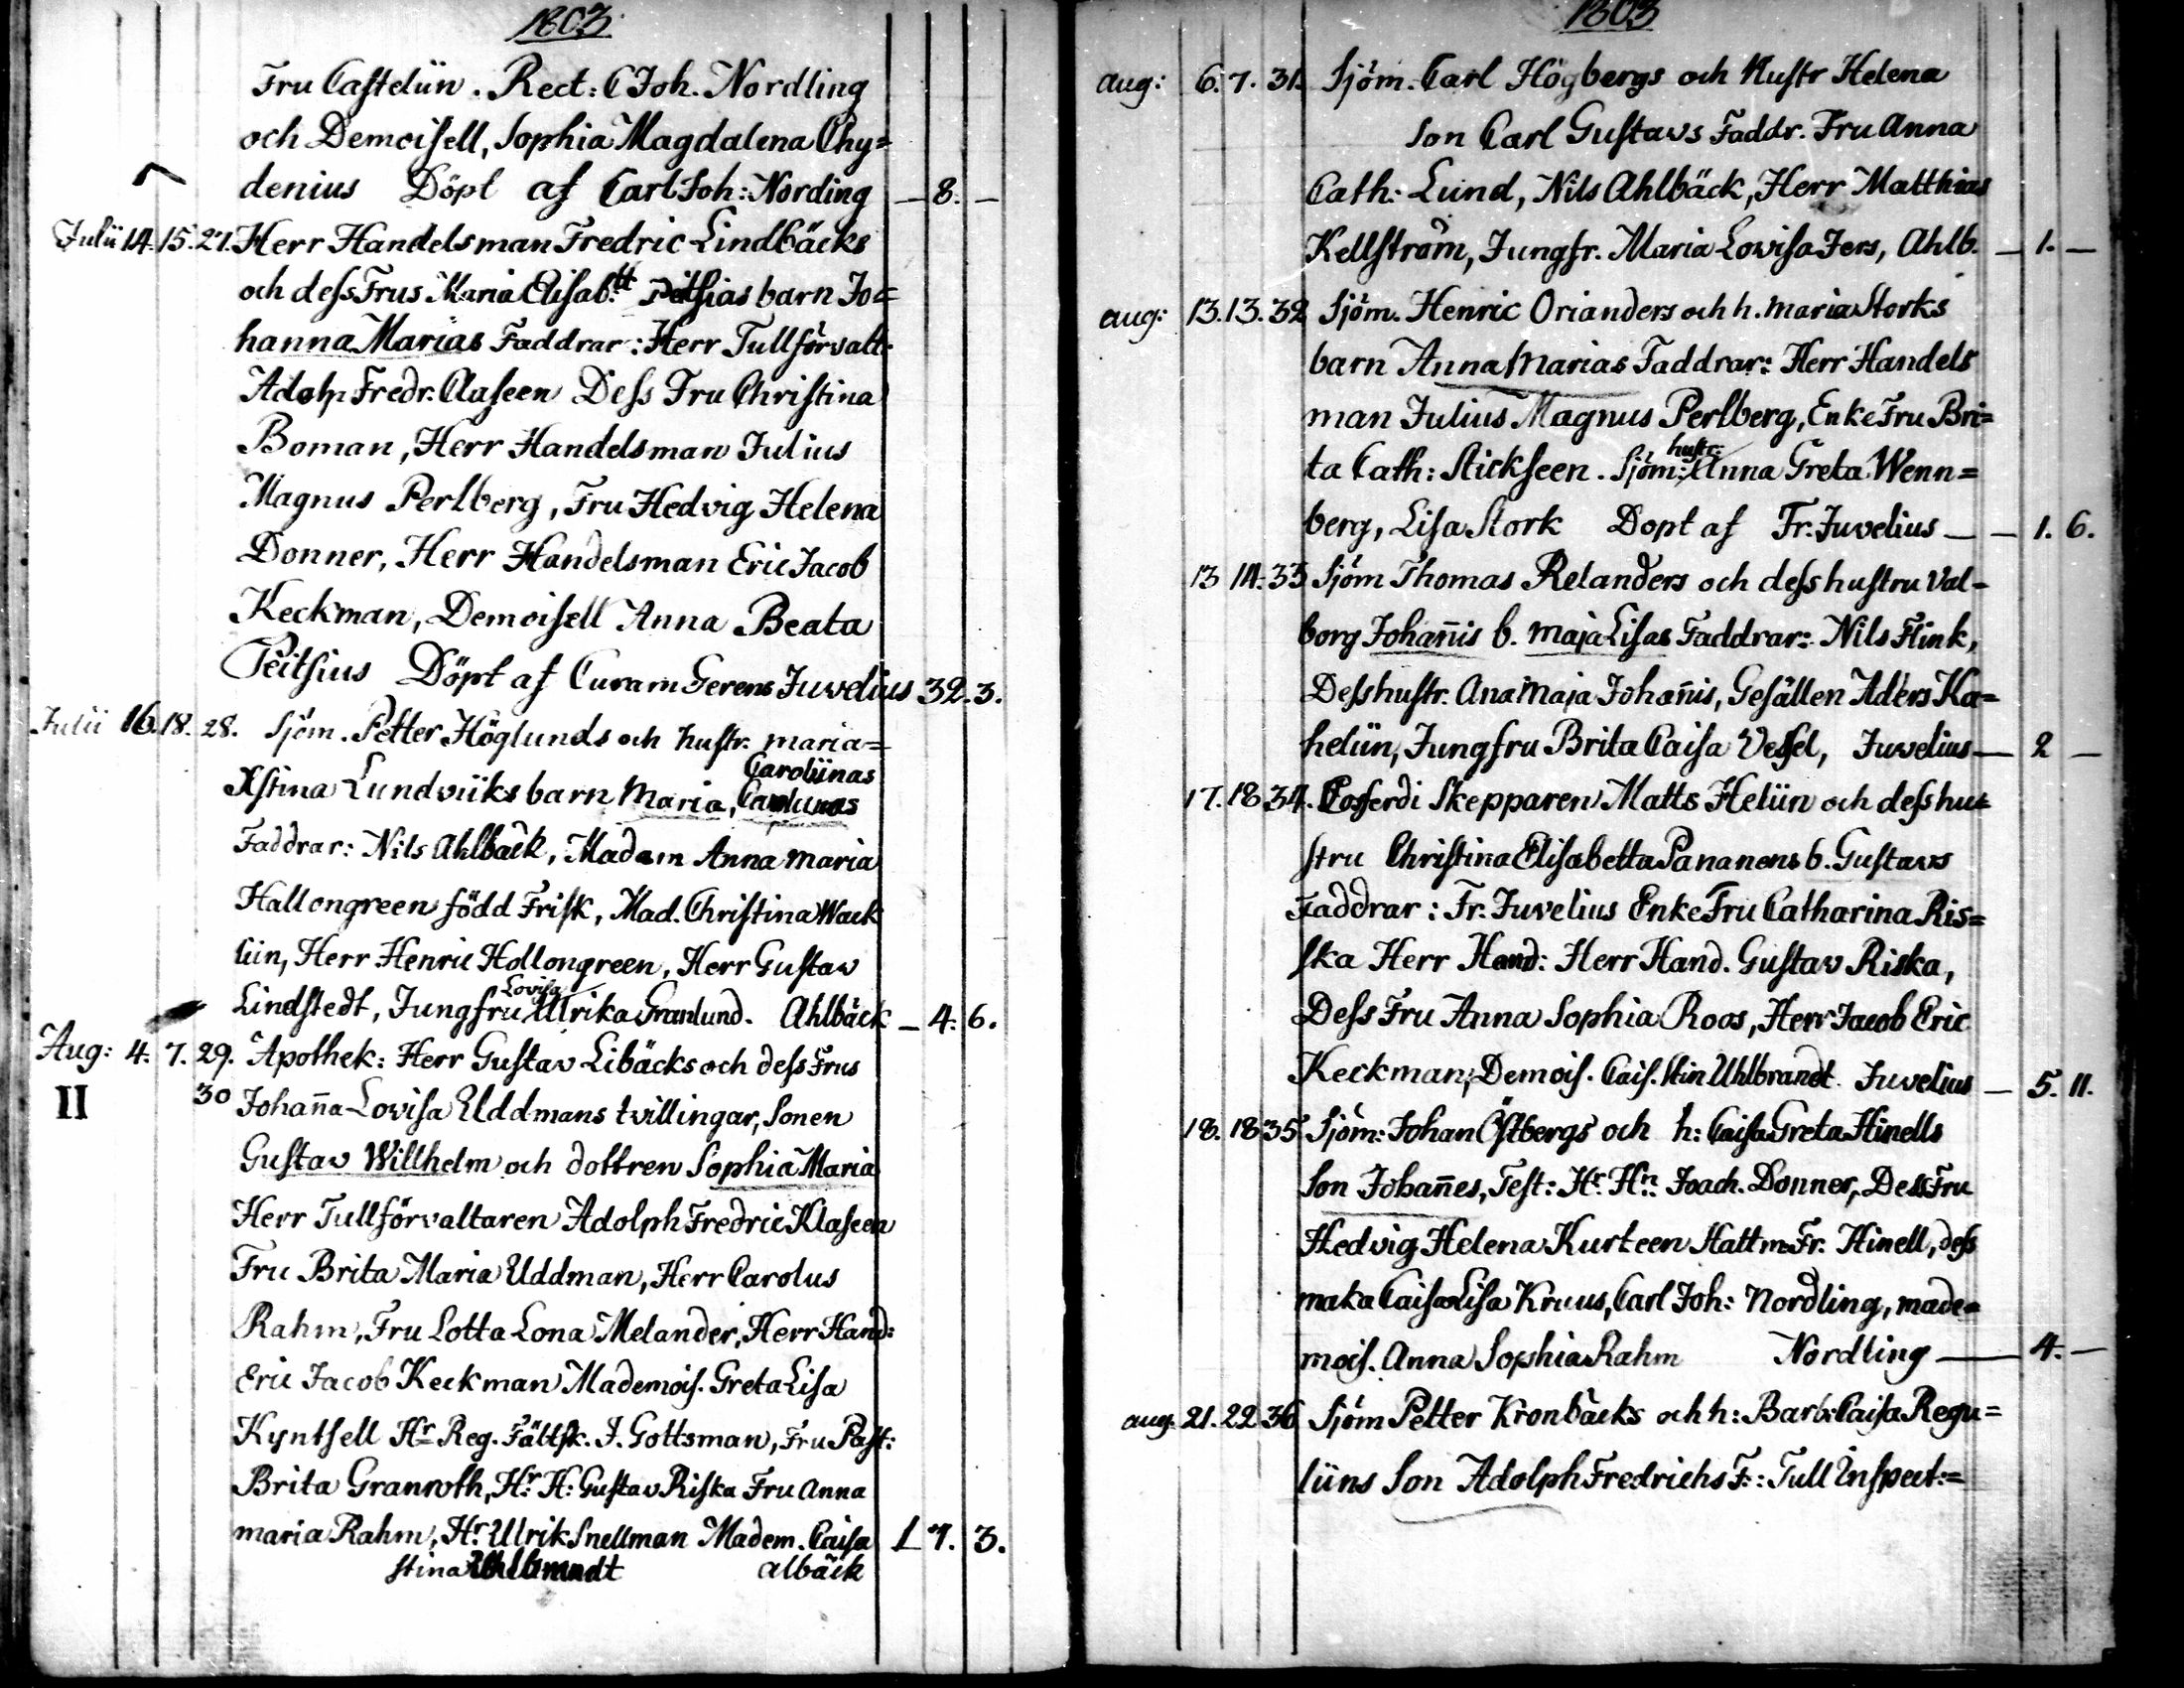 1803.
Fru Castelün. Rect: C Joh. Nordling
och Demoisell, Sophia Magdalena Chy=
denius Döpt af Carl Joh: Nording — 8. —
Julii 14. 15. 27. Herr Handelsman Fredric Lindbäcks
och dess Frus Maria Elisab:tt Peitsias barn Jo=
hanna Marias Faddrar: Herr Tullförvalt:
Adolp Fredr. Claseen Dess Fru Christina
Boman, Herr Handelsman Julius
Magnus Perlberg, Fru Hedvig Helena
Donner, Herr Handelsman Eric Jacob
Keckman, Demoisell Anna Beata
Peitsius Döpt af Curam Gerens Juvelius 32. 3.
Julii 16. 18. 28. Sjöm. Petter Höglunds och hustr. maria=
Caroliinas
Xstina Lundviiks barn Maria,
Faddrar: Nils Ahlbäck, Madam Anna maria
Hallongreen född Frisk, Mad. Christina Wack
liin, Herr Henric Hollongreen, Herr Gustav
Lovisa
Lindstedt, Jungfru Ulrika Granlund. Ahlbäck — 4: 6.
Aug: 4. 7. 29. Apothek: Herr Gustav Libäcks och dess Frus
II 30 Johan̄a Lovisa Uddmans tvillingar, Sonen
Gustav Willhelm och dottren Sophia Maria
Herr Tullförvaltaren Adolph Fredric Klaseen
Fru Brita Maria Uddman, Herr Carolus
Rahm, Fru Lotta Lona Melander, Herr Hand:
Eric Jacob Keckman Mademois. Greta Lisa
Kyntsell Hr Reg. Fältsk. J. Gottsman, Fru Past:
Brita Granroth, Hr. H: Gustav Riska Fru Anna
maria Rahm, Hr. Ulrik Snellman Madem. Caisa 1 7. 3.
stina Uhlbrandt albäck
1803
aug: 6. 7. 31. Sjöm. Carl Högbergs och Hustr Helena
Son Carl Gustavs Faddr. Fru Anna
Cath: Lund, Nils Ahlbäck, Herr Matthias
Kellström, Jungfr. Maria Lovisa Fers, Ahlb. — 1. —
aug: 13. 13. 32 Sjöm. Henric Orianders och h. maria Storks
barn Anna Marias Faddrar: Herr Handels
man Julius Magnus Perlberg, Enke Fru Bri=
hustr:
ta Cath: Stickseen. Sjöm: Anna Greta Wenn=
berg, Lisa Stork Dopt af Fr. Juvelius — — 1. 6.
13 14. 33 Sjöm Thomas Relanders och dess hustru Val=
borg Johan̄is b. maja Lisas Faddrar: Nils Flink,
Dess hustr. Ana Maja Johan̄is, Gesällen Aders Ka=
helün, Jungfru Brita Caisa Vessel, Juvelius — 2 —
17. 18 34. Cofferdi Skepparen Matts Helün och dess hu=
stru Christina Elisabetta Pananens b. Gustavs
Faddrar: Fr. Juvelius Enke Fru Catharina Ris=
ska Herr Hand: Herr Hand. Gustav Riska,
Dess Fru Anna Sophia Roos, Herr Jacob Eric
Keckman, Demois. Cais. Stin Uhlbrandt. Juvelius — 5. 11.
18. 18 35 Sjöm: Johan Östbergs och h: Caisa Greta Hinells
Son Johan̄es, Test: Hr. Hn: Joach. Donner, Dess Fru
Hedvig Helena Kurteen Hattm Fr. Hinell, dess
maka Caisa Lisa Kruus, Carl Joh: Nordling, made=
mois. Anna Sophia Rahm Nordling — 4. —
aug. 21. 22 36 Sjöm Petter Kronbäcks och h: Barb: Caisa Regu=
liins Son Adolph Fredrichs F:: Tull Inspect:=